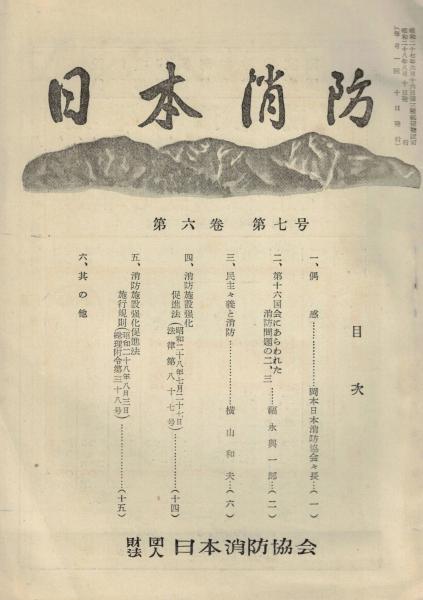 日本消防
昭和二十八年八月十日発行
(毎月一回十日発行)
第六卷 第七号
目次
一、偶感……………岡本日本消防協会々長…(一)
二、第十六国会にあらわれた
消防問題の二、三……福永與一郎…(二)
三、民主々義と消防…………横山和夫…(六)
四、消防施設强化
促進法(昭和二十八年七月二十七日
法律第八十七号)……………(十四)
五、消防施設强化促進法
施行規則(昭和二十八年八月三日
総理府令第三十八号)…………(十五)
六、其の他
財団
法人 日本消防協会